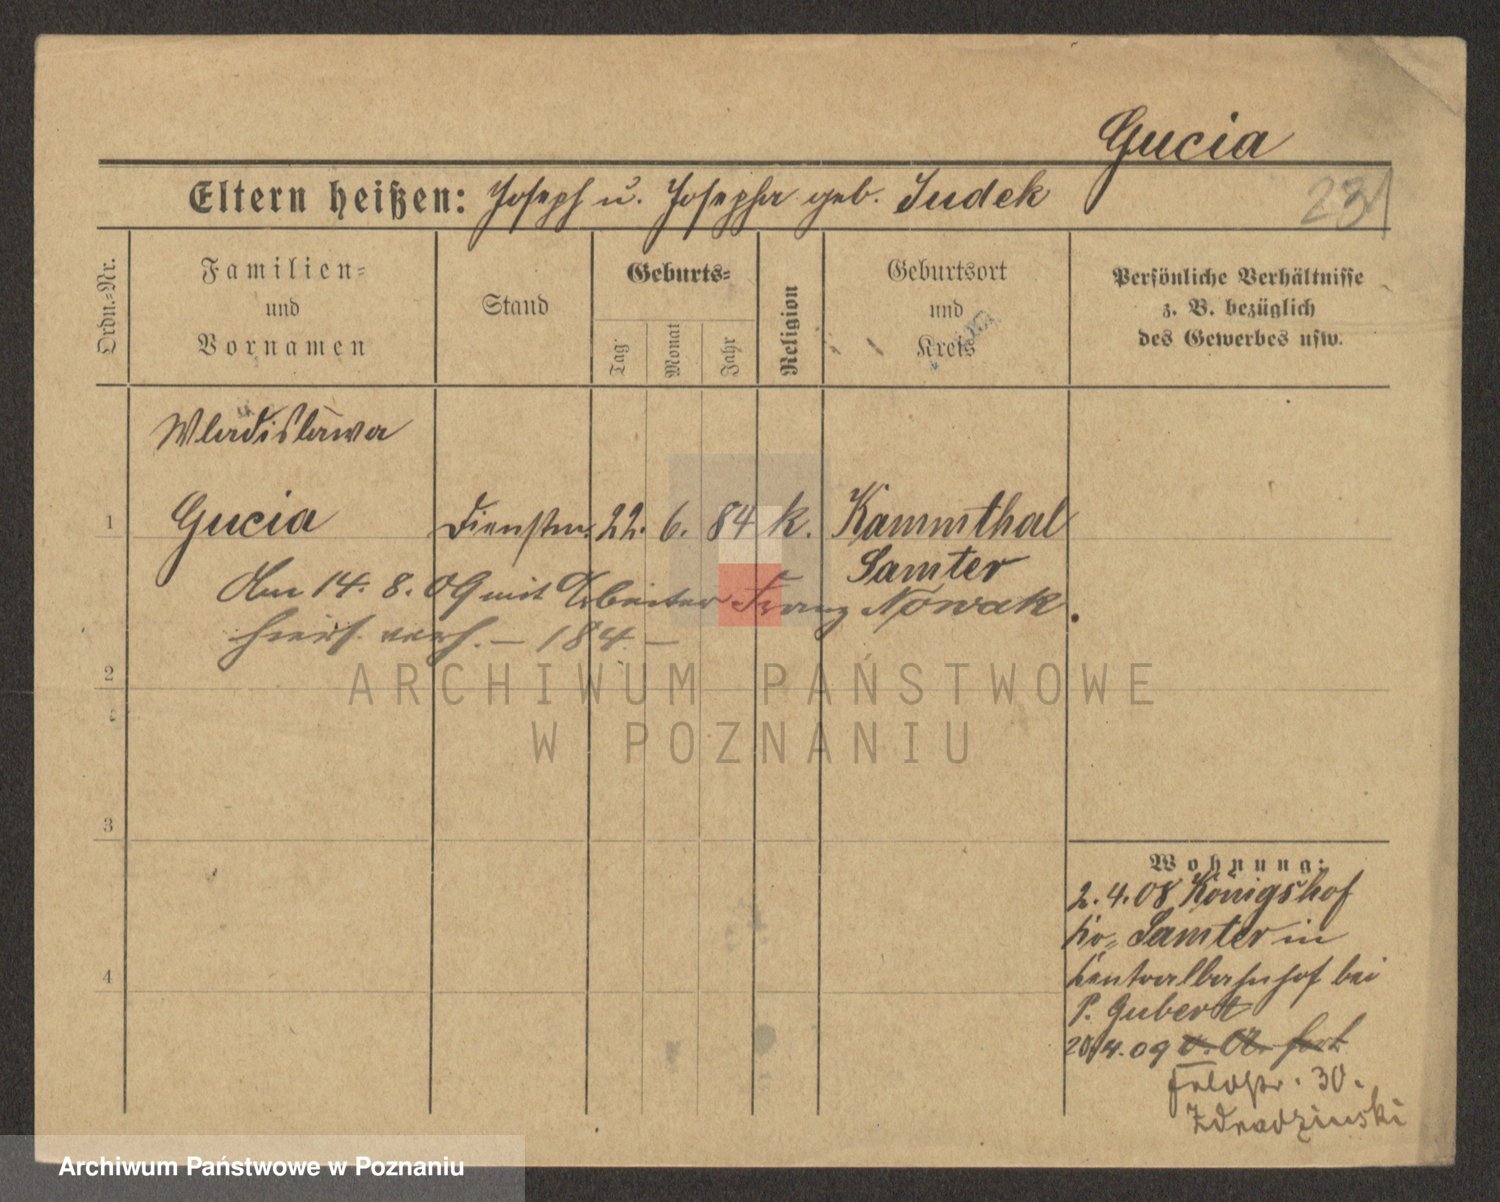 Gucia
231
Eltern heißen: Joseph u. Josepha geb. Judek
Ordn.-Nr.
Familien-
und
Vornamen
Stand
Geburts-
Tag
Monat
Jahr
Religion
Geburtsort
und
Kreis
Persönliche Verhältnisse
z. B. bezüglich
des Gewerbes usw.
Wladislawa
1 Gucia Dienstm. 22. 6. 84 k. Kammthal
Samter
Am 14. 8. 09 mit Arbeiter Franz Nowak.
hier verh. – 184 –
2
3
4
ARCHIWUM PAŃSTWOWE
W POZNANIU
Wohnung:
2.4.08 Königshof
Samter in
Zentralbahnhof bei
P. Gubert
20/4.09 v. A. fort
Feldstr. 30.
Zdradzinski
Archiwum Państwowe w Poznaniu